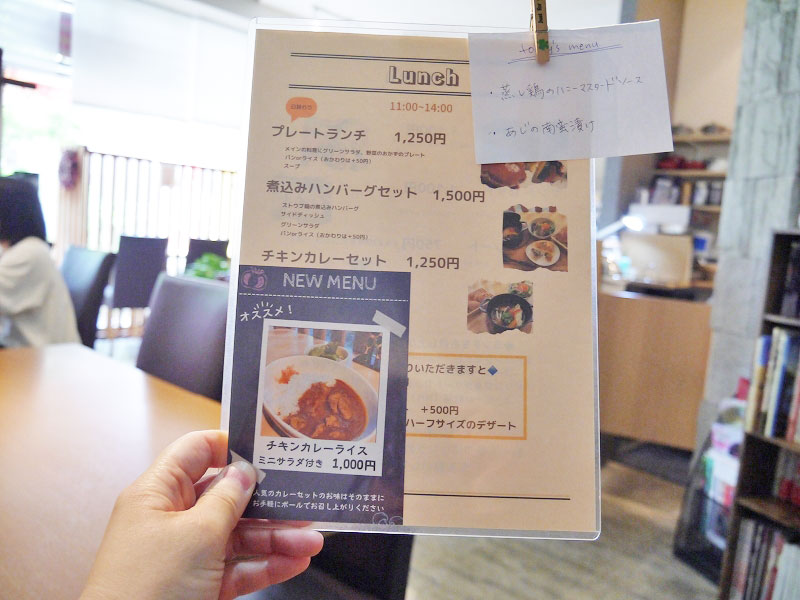 today's menu
・蒸し鶏のハニーマスタードソース
・あじの南蛮漬け
Lunch
11:00~14:00
プレートランチ 1,250円
メインの料理にグリーンサラダ、野菜のおかず のプレート
パンorライス（おかわりは＋50円）
スープ
煮込みハンバーグセット 1,500円
ストウブ鍋の煮込みハンバーグ
サイドディッシュ
グリーンサラダ
パンorライス（おかわりは＋50円）
チキンカレーセット 1,250円
NEW MENU
オススメ！
チキンカレーライス
ミニサラダ付き 1,000円
人気のカレーセットのお味はそのままに
お手軽にボールでお召し上がりください
りいただきますと
＋500円
ハーフサイズのデザート